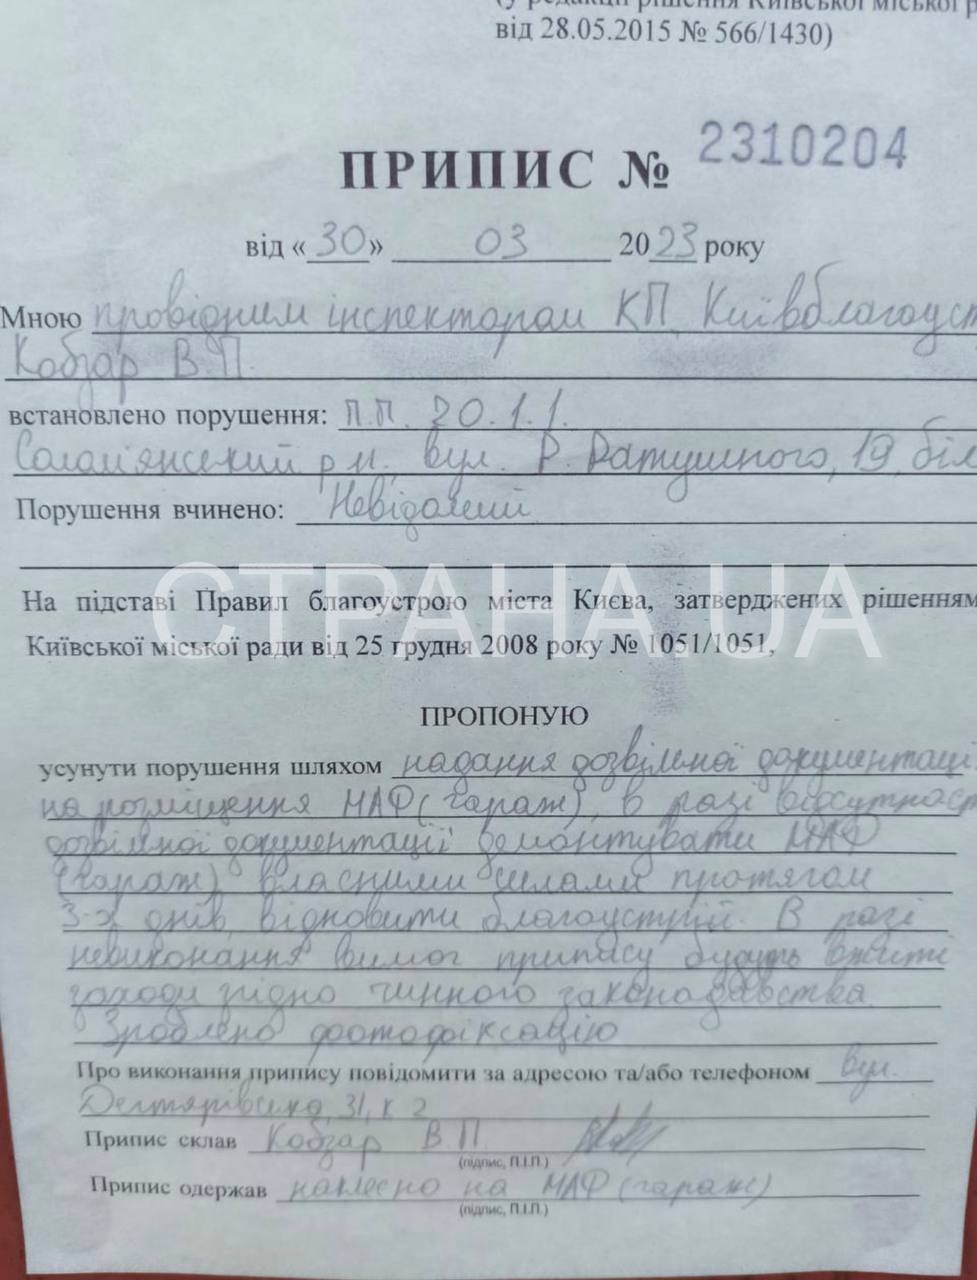 (у редакції рішення Київської міської р
від 28.05.2015 № 566/1430)
ПРИПИС № 2310204
від «30» 03 2023 року
Мною провідним інспектором КП Київблагоуст
Кобзар В.П.
встановлено порушення: п.п. 20.1.1.
Солом'янський р-н, вул. Р. Ратушного, 19, біл
Порушення вчинено: Невідомий
СТРАНА.UA
На підставі Правил благоустрою міста Києва, затверджених рішенням
Київської міської ради від 25 грудня 2008 року № 1051/1051,
ПРОПОНУЮ
усунути порушення шляхом надання дозвільної документації
на розміщення МАФ (гараж), в разі відсутност
дозвільної документації демонтувати МАФ
(гараж) власними силами протягом
3-х днів, відновити благоустрій. В разі
невиконання вимог припису будуть вжиті
заходи згідно чинного законодавства
Зроблено фотофіксацію
Про виконання припису повідомити за адресою та/або телефоном вул.
Дегтярівська, 31, к 2
Припис склав Кобзар В.П.
(підпис, П.І.П.)
Припис одержав наклеєно на МАФ (гараж)
(підпис, П.І.П.)